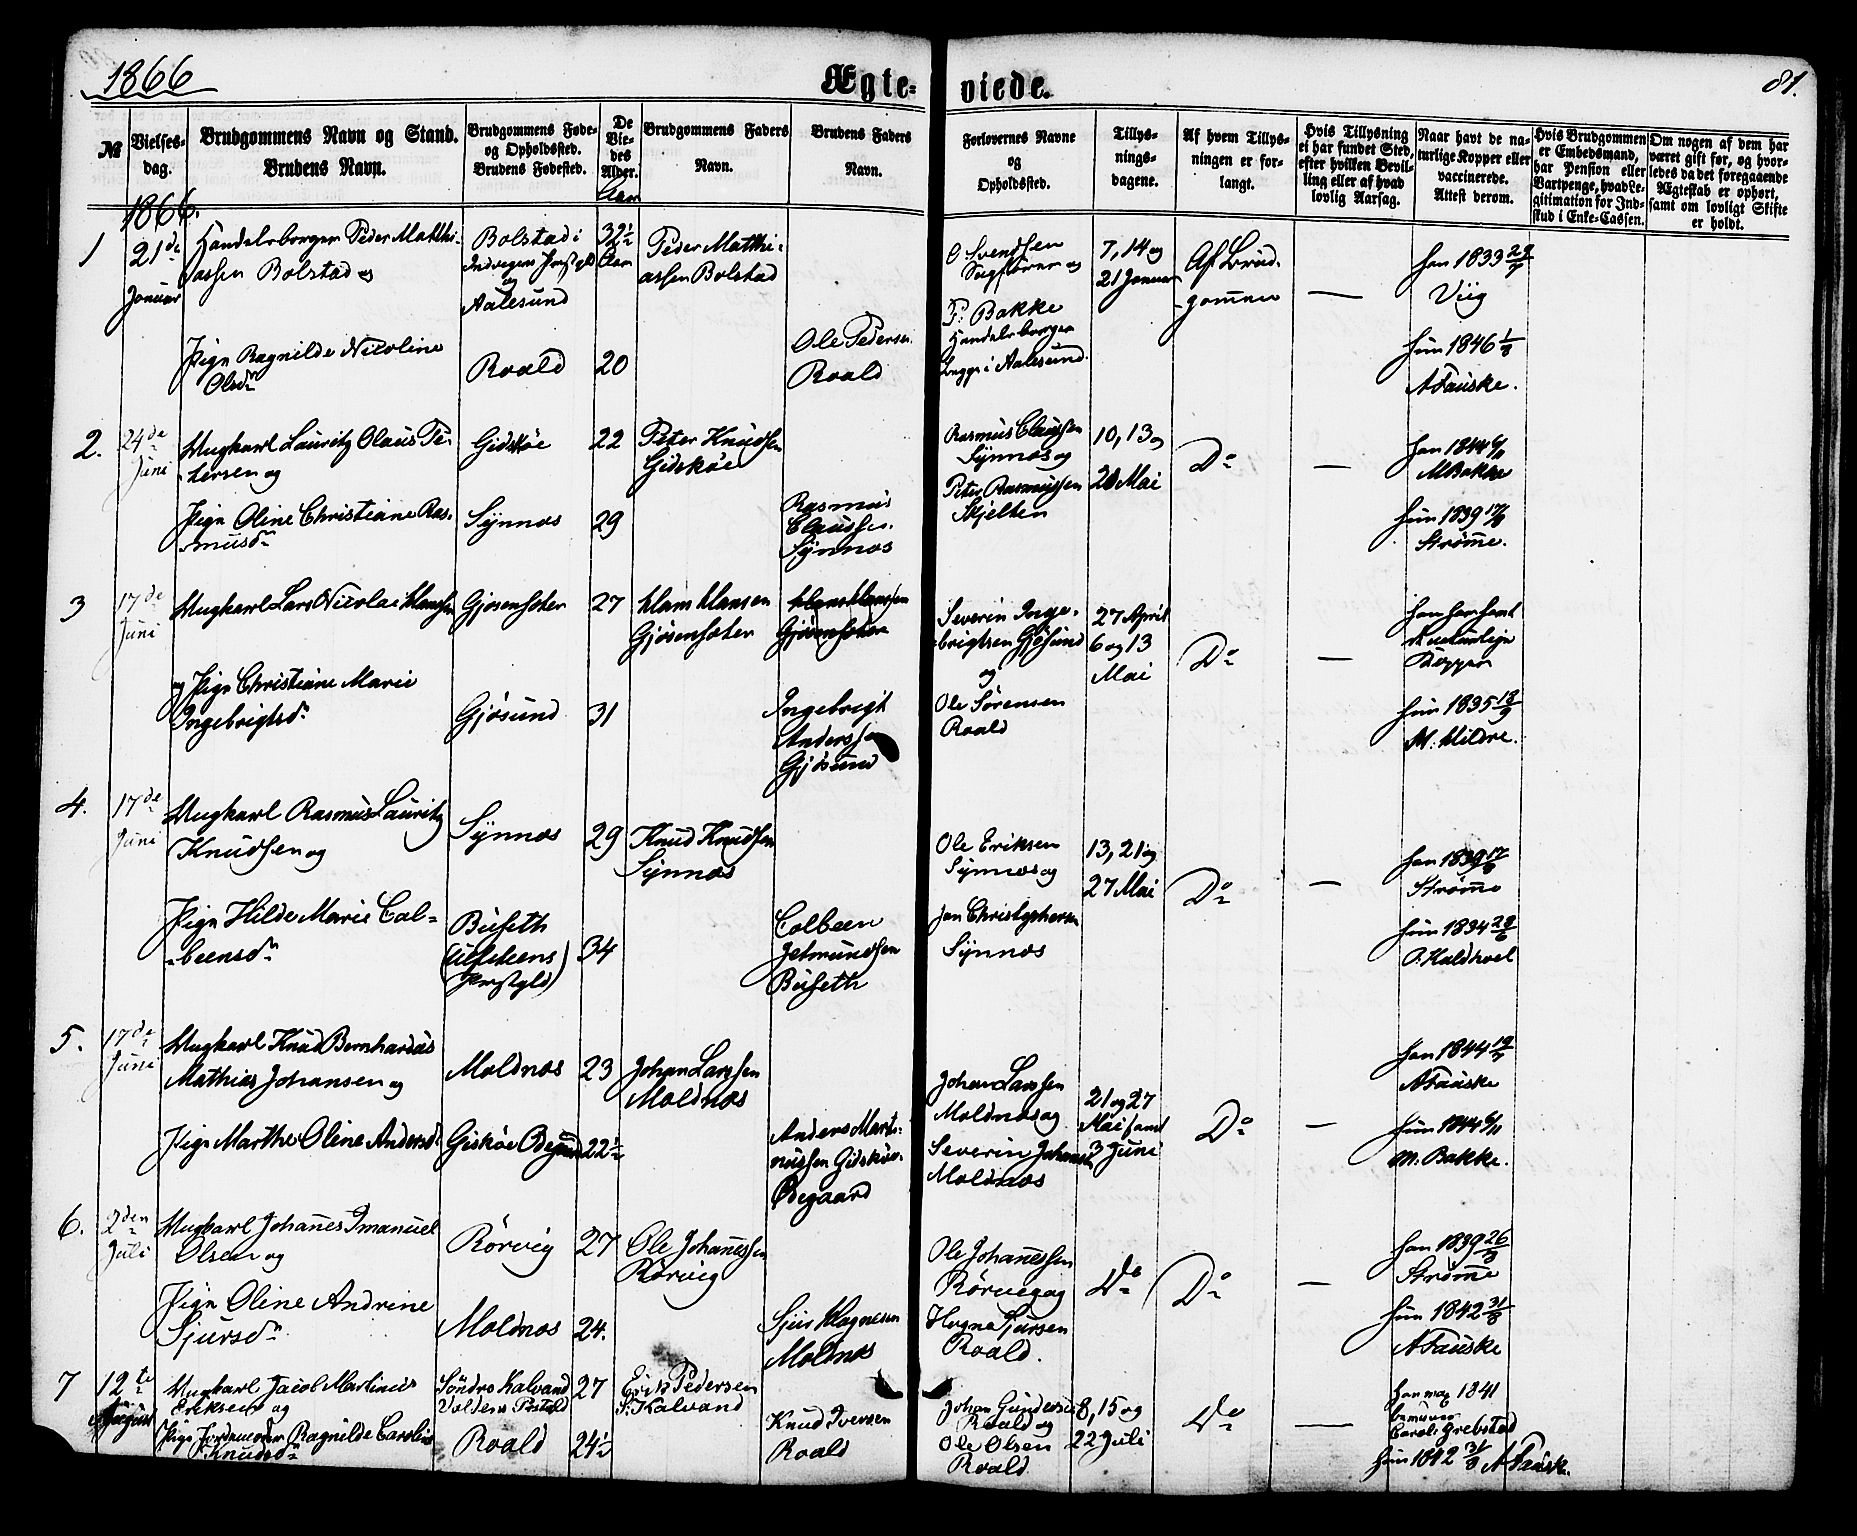 1866
Ægte-
viede.
81.
№
Vielses-
dag.
Brudgommens Navn og Stand.
Brudens Navn.
Brudgommens Føde-
og Opholdssted.
Brudens Fødested.
De
Vie-
des
Alder.
Aar
Brudgommens Faders
Navn.
Brudens Faders
Navn.
Forlovernes Navne
og
Opholdssted.
Tillys-
nings-
dagene.
Af hvem Tillys-
ningen er for-
langt.
Hvis Tillysning
ei har fundet Sted,
efter hvilken Bevil-
ling eller af hvad
lovlig Aarsag.
Naar havt de na-
turlige Kopper eller
vaccinerede.
Attest derom.
Hvis Brudgommen
er Embedsmand,
har Pension eller
Vartpenge, hvad Le-
gitimation for Ind-
skud i Enke-Cassen.
Om nogen af dem har
været gift før, og hvor-
ledes da det foregaaende
Ægteskab er ophørt,
samt om lovligt Skifte
er holdt.
1866.
1
21de
Januar
Handelsborger Peder Matthi-
assen Bolstad og
Bolstad i
Indvigens Præstgld
og
Aalesund
32½
Aar
Peder Matthi-
assen Bolstad
O Svendsen
Sagfører og
P. Bakke
Handelsborger
begge i Aalesund.
7, 14 og
21 Januar
Af Brud-
gommen
—
han 1833 29/7
Viig
Pige Ragnilde Nicoline
Olsdr
Roald
20
Ole Pedersen
Roald
hun 1846 1/8
A Fauske.
2.
24de
Juni
Ungkarl Lauritz Olaus Pe-
tersen og
Gidskøe
22
Peter Knudsen
Gidskøe
Rasmus Claussen
Synnæs og
Peter Rasmussen
Skjelten
10, 13 og
20 Mai
Do
—
han 1844 6/11
M Bakke
Pige Oline Christiane Ras-
musdr
Synnæs
29
Rasmus
Claussen
Synnæs
hun 1839 17/8
Strømme.
3
17de
Juni
Ungkarl Lars Nicolai Klamsen
Gjøsensæter
27
Klam Klamsen
Gjøsensæter
Klam Klamsen
Gjøsensæter
Severin Inge-
brigtsen Gjøsund
og
Ole Sørensen
Roald
27 April
6 og 13
Mai
Do
—
han har havt
de naturlige
Kopper
og Pige Christiane Marie
Ingebrigtsdr
Gjøsund
31
Ingebrigt
Anderssen
Gjøsund
hun 1835 18/9
M. Kildre.
4.
17de
Juni
Ungkarl Rasmus Lauritz
Knudsen og
Synnæs
29
Knud Knudsen
Synnæs
Ole Eriksen
Synnæs og
Jan Christophersen
Synnæs
13, 21 og
27 Mai
Do
—
han 1839 17/8
Strømme
Pige Hilde Marie Col-
beensdr
Buseth
(Ulsteens
Præstgld)
34
Colbeen
Jetmundsen
Buseth
hun 1834 28/6
P. Kaldhoel
5.
17de
Juni
Ungkarl Knud Bernhardus
Mathias Johansen og
Moldnæs
23
Johan Larssen
Moldnæs
Johan Larssen
Moldnæs og
Severin Johansen
Moldnæs
21 og 27
Mai samt
3 Juni
Do
—
han 1844 19/7
A Fauske
Pige Marthe Oline Andersdr
Giskøe Ødegaard
22½
Anders Marti-
nussen Gidskøe-
Ødegaard
hun 1844 6/11
M. Bakke.
6.
2den
Juli
Ungkarl Johannes Imanuel
Olsen og
Rørvig
27
Ole Johannessen
Rørvig
Ole Johannessen
Rørvig og
Hogne Sjursen
Roald.
Do
Do
—
han 1839 26/8
Strømme
Pige Oline Andrine
Sjursdr
Moldnæs
24.
Sjur Hognesen
Moldnæs
hun 1842 31/8
A Fauske
7
12te
August
Ungkarl Jacob Martinus
Eriksen og
Søndre Kalvand
Voldens Prstgld
27
Erik Pedersen
S. Kalvand
Johan Gundersen
Roald og
Ole Olsen
Roald
8, 15 og
22 Juli
Do
—
1841
Grebstad
Pige Ragnilde Caroline
Knudsdr
Roald
24½
Knud Iversen
Roald
hun 1842 31/8 A Fauske.